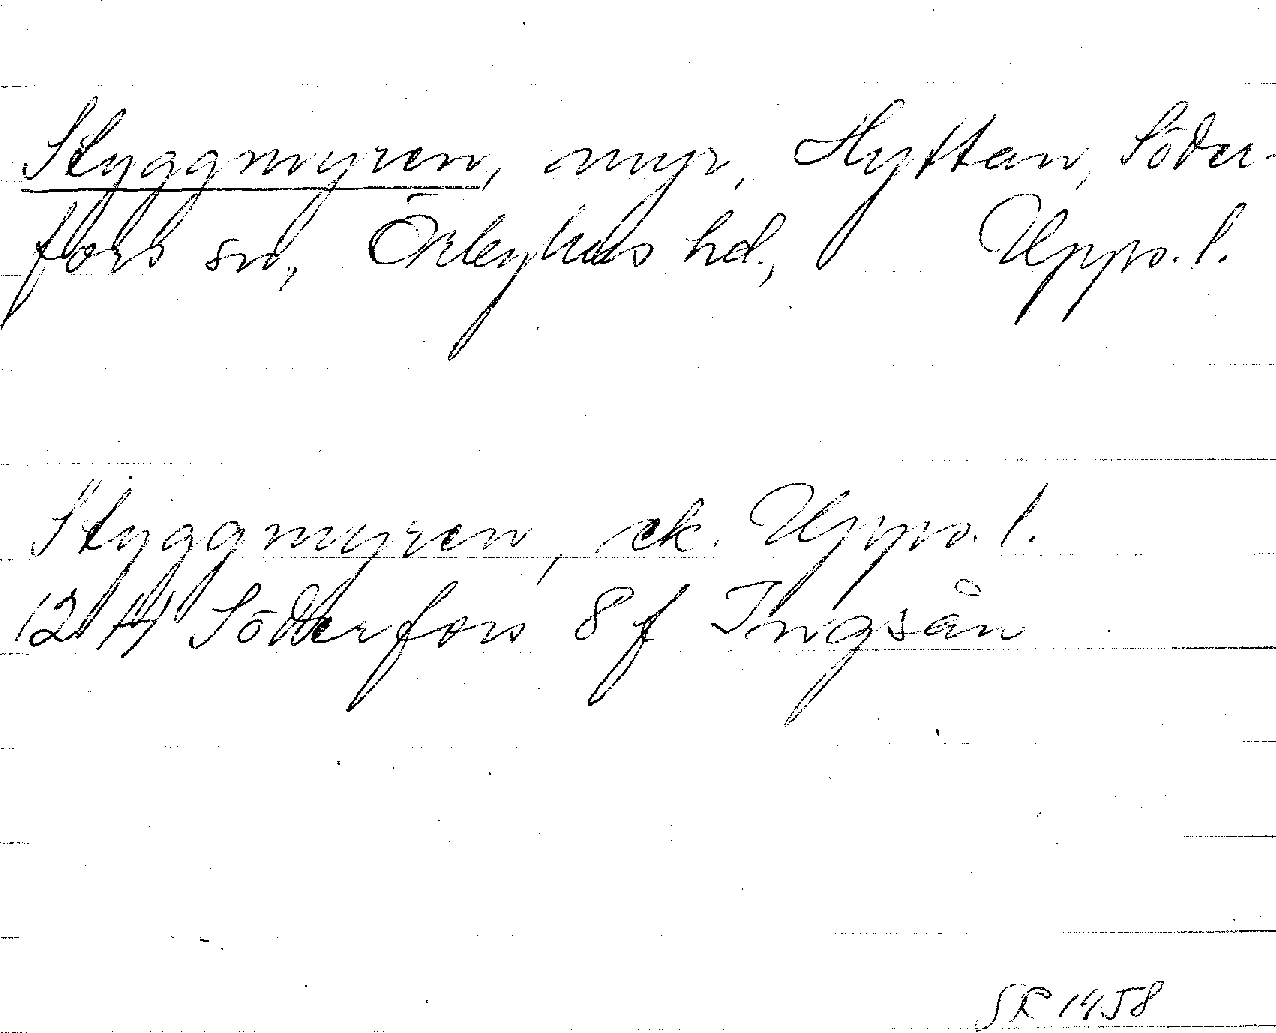 Styggmyren, myr, Hyttan, Söder-
fors sn, Örbyhus hd, Upps. l.
Styggmyren, ek. Upps. l.
12 H Söderfors 8 f Ingsån
SR 1958